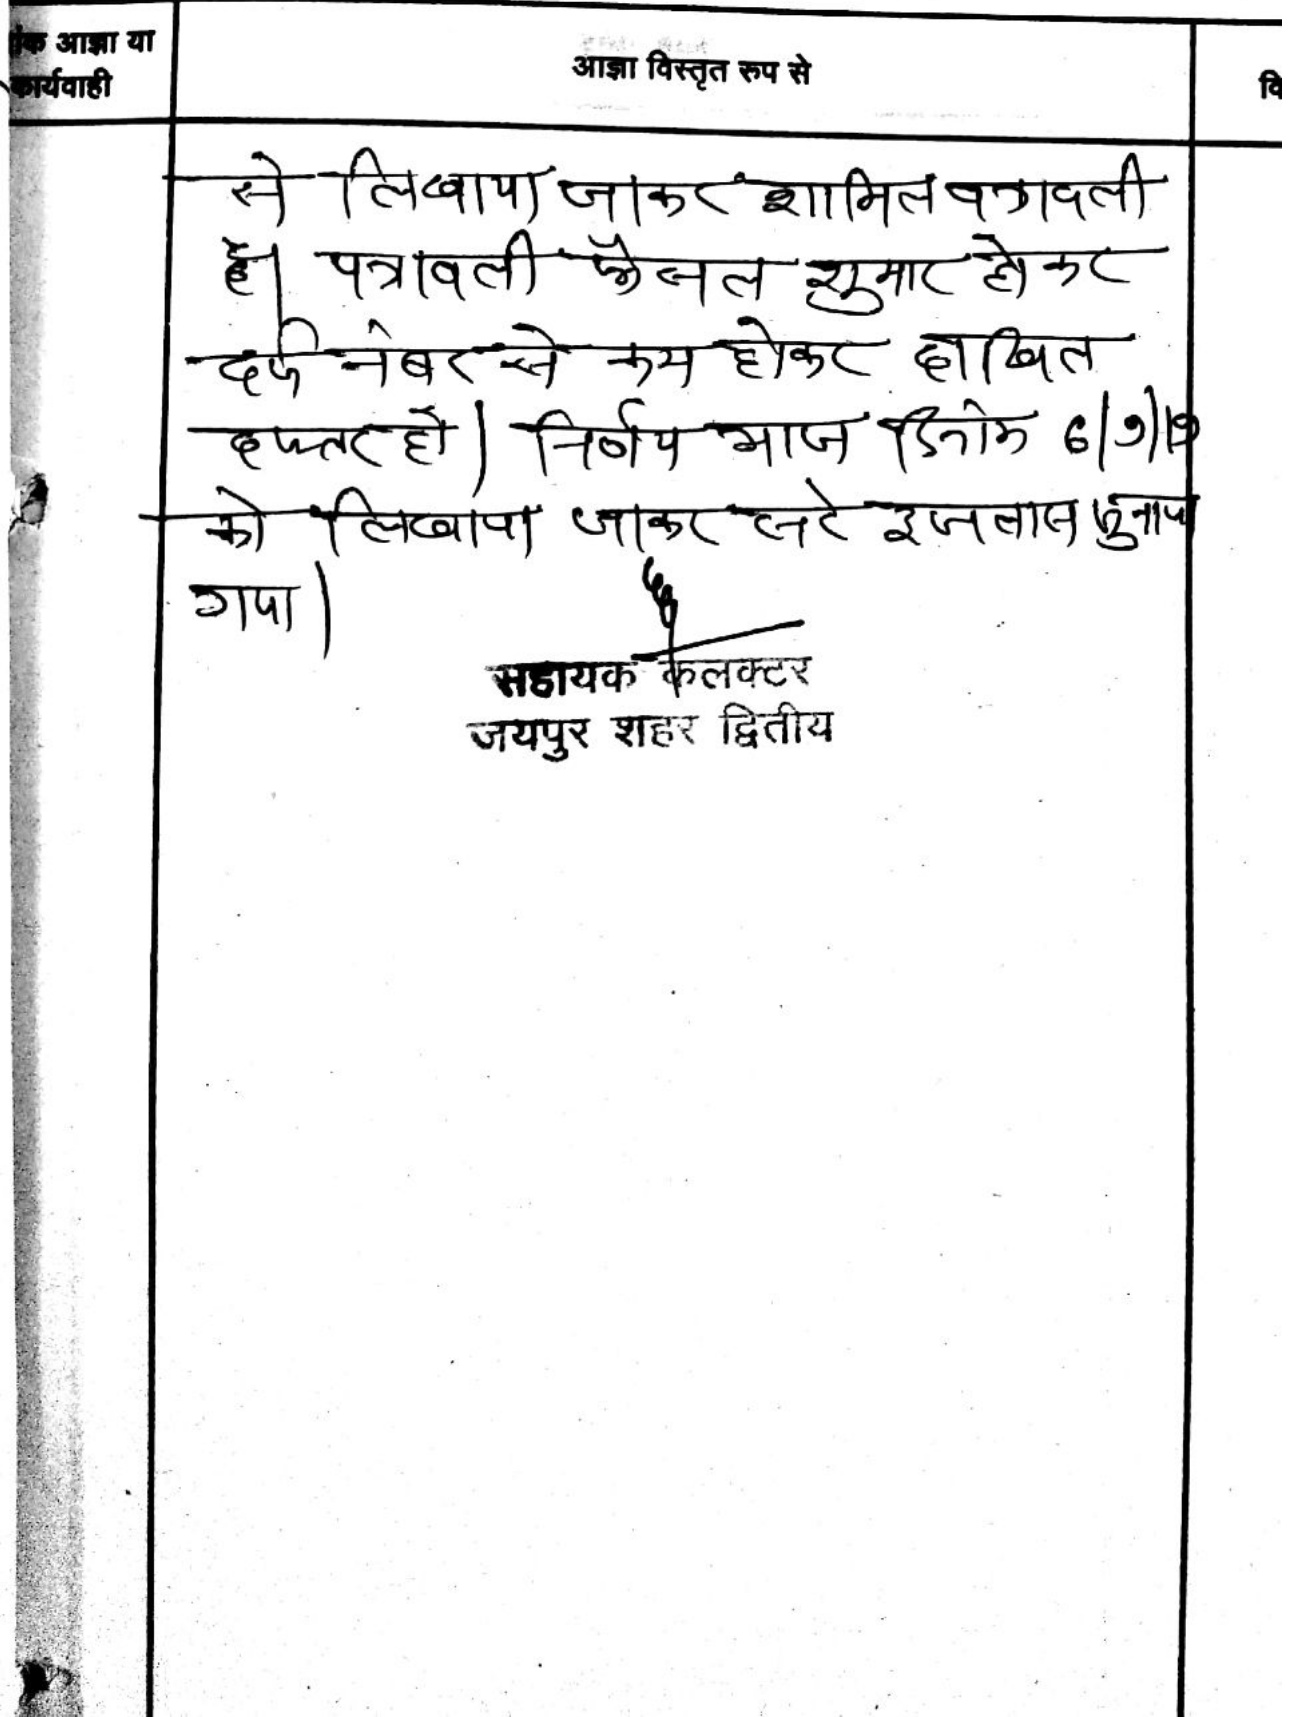 आज्ञा या
कार्यवाही
आज्ञा विस्तृत रूप से
वि
से लिखाया जाकर शामिल पत्रावली
है। पत्रावली फैसल शुमार होकर
दर्ज नंबर से कम होकर दाखिल
दफ्तर हो। निर्णय आज दिनांक 6/9/19
को लिखाया जाकर सरे इजलास सुनाया
गया।
सहायक कलक्टर
जयपुर शहर द्वितीय